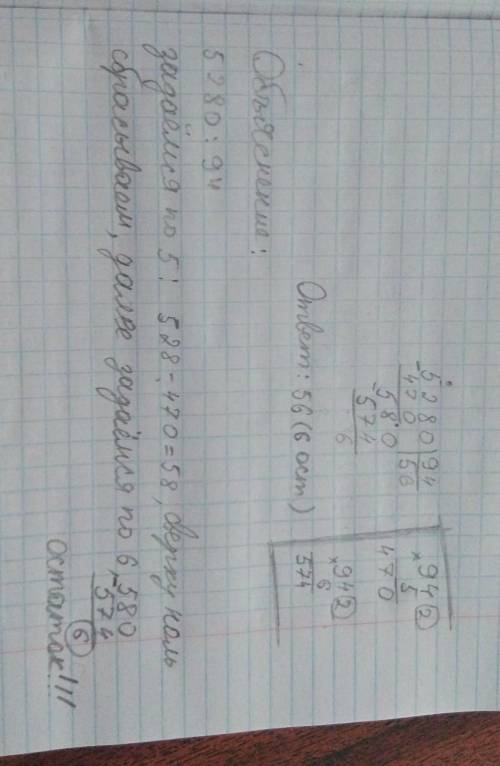 5280|94
470 |56
580
574
6
94 2
× 5
470
94 2
× 6
574
Ответ: 56 (6 ост)
Объяснение:
5280 : 94
задаёмся по 5: 528 - 470 = 58, сверху ноль
сбрасываем, далее задаёмся по 6, 580
- 574
6
остаток!!!